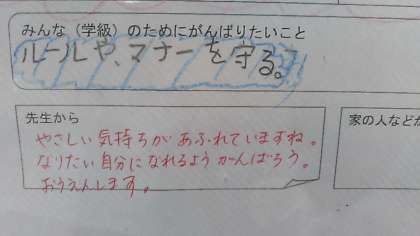 みんな（学級）のためにがんばりたいこと
ルールや、マナーを守る。
先生から
やさしい気持ちがあふれていますね。
なりたい自分になれるようがんばろう。
おうえんします。
家の人などか